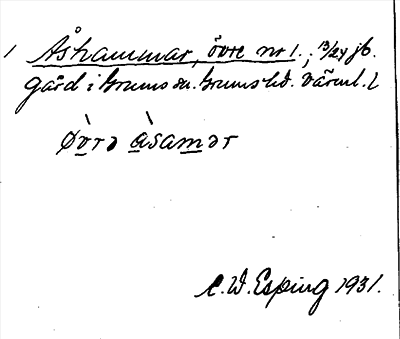 1 Åshammar, övre nr 1.; 13/24 jb.
gård i Grums sn. Grums hd. Värml. l
Øvrə åsamər
C. W. Esping 1931.